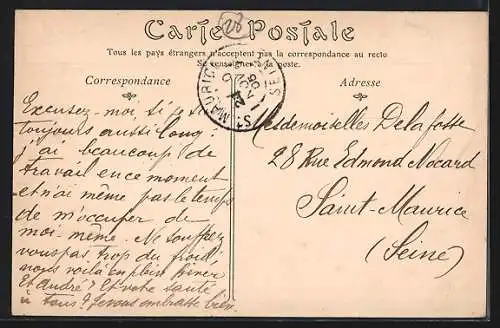 Carte Postale
28
Tous les pays étrangers n'acceptent pas la correspondance au recto
Se renseigner à la poste.
Correspondance
Adresse
St MAURICE
Excusez-moi, si je suis
toujours aussi long
j'ai beaucoup de
travail en ce moment
et n'ai même pas le temps
de m'occuper de
moi-même. Ne souffrez
vous pas trop du froid
nous voilà en plein hiver
Et André? Et votre santé
à tous? Je vous embrasse bien
Mesdemoiselles Delafosse
28 Rue Edmond Nocard
Saint-Maurice
(Seine)